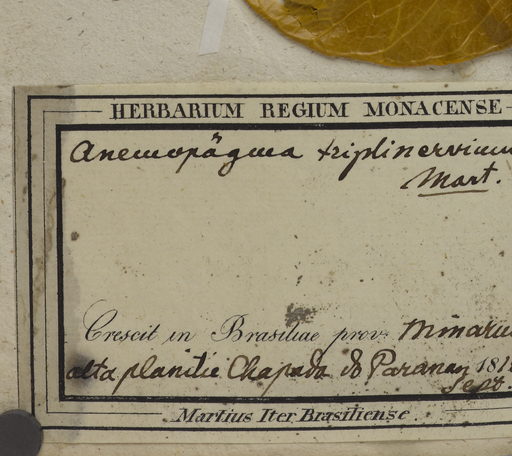 HERBARIUM REGIUM MONACENSE
Anemopägma triplinervium
Mart.
Crescit in Brasiliae prov. Minarum
alta planitie Chapada do Paranan 181
Sept.
Martius Iter Brasiliense.